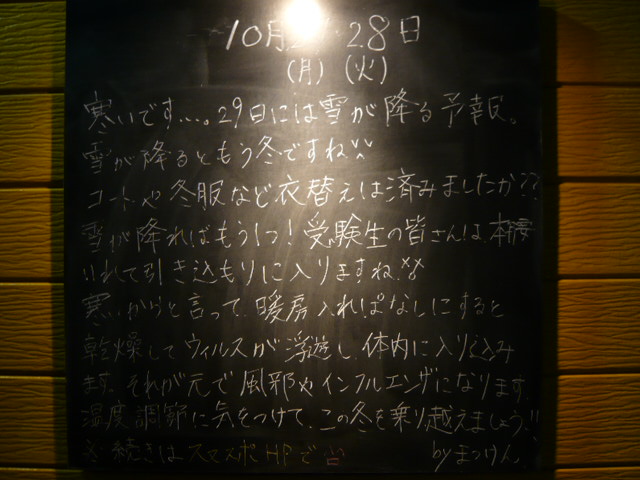 10月 28日
(月) (火)
寒いです…。29日には雪が降る予報。
雪が降るともう冬ですね
コートや冬服など衣替えは済みましたか??
雪が降ればもう1つ!受験生の皆さんは、本腰
いれて引き込もりに入りますね
寒いからと言って、暖房入れぱなしにすると
乾燥してウィルスが浮遊し、体内に入り込み
ます。それが元で風邪やインフルエンザになります。
温度調節に気をつけて、この冬を乗り越えましょう!!
※続きはスマスポHPで
byまつけん